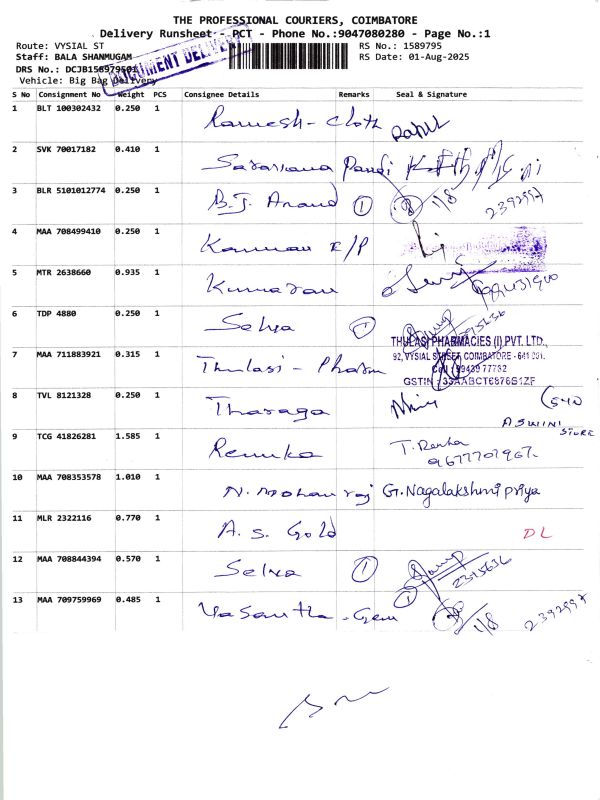 THE PROFESSIONAL COURIERS, COIMBATORE
Delivery Runsheet - PCT - Phone No.:9047080280 - Page No.:1
Route: VYSIAL ST RS No.: 1589795
Staff: BALA SHANMUGAM RS Date: 01-Aug-2025
DRS No.: DCJB158979501
DOCUMENT DELIVERY
Vehicle: Big Bag Delivery
S No Consignment No Weight PCS Consignee Details Remarks Seal & Signature
1 BLT 100302432 0.250 1 Ramesh - Cloth Rahul
2 SVK 70017182 0.410 1 Saravana Pandi
3 BLR 5101012774 0.250 1 B.J. Anand 1 1/8 2392997
4 MAA 708499410 0.250 1 Kannan E/P
5 MTR 2638660 0.935 1 Kumaran
6 TDP 4880 0.250 1 Selva 1
7 MAA 711883921 0.315 1 Thulasi - Pharm
THULASI PHARMACIES (I) PVT. LTD.,
92, VYSIAL STREET, COIMBATORE - 641 001.
Cell : 99439 77732
GSTIN : 33AABCT6876G1ZF
8 TVL 8121328 0.250 1 Tharaga
ASWINI STORE
9 TCG 41826281 1.585 1 Renuka T. Renka
9677707967
10 MAA 708353578 1.010 1 N. Mohan raj G. Nagalakshmi priya
11 MLR 2322116 0.770 1 A. S. Gold DL
12 MAA 708844394 0.570 1 Selva 1 2395636
13 MAA 709759969 0.485 1 Vasantha - Gem 1 1/8 2392997